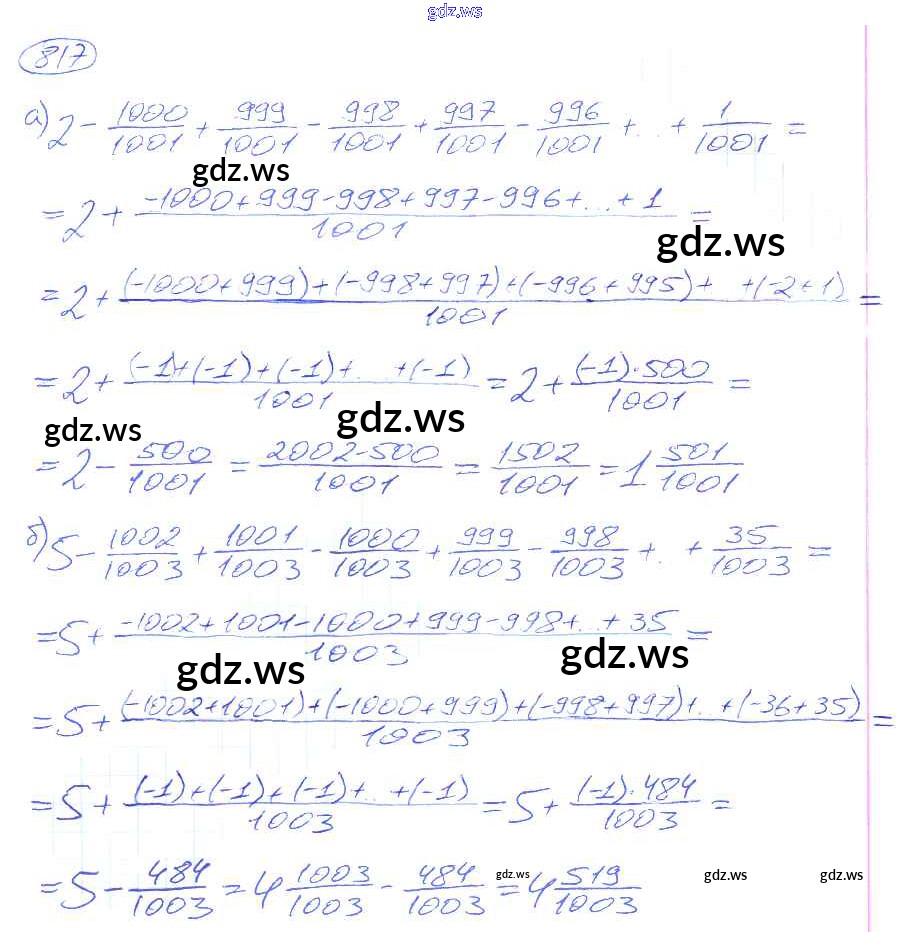 gdz.ws
817
а) 2 - 1000/1001 + 999/1001 - 998/1001 + 997/1001 - 996/1001 + ... + 1/1001 =
gdz.ws
= 2 + (-1000+999-998+997-996+...+1)/1001 =
gdz.ws
= 2 + ((-1000+999)+(-998+997)+(-996+995)+ .. +(-2+1))/1001 =
= 2 + ((-1)+(-1)+(-1)+ .. +(-1))/1001 = 2 + ((-1)·500)/1001 =
gdz.ws gdz.ws
= 2 - 500/1001 = (2002-500)/1001 = 1502/1001 = 1 501/1001
б) 5 - 1002/1003 + 1001/1003 - 1000/1003 + 999/1003 - 998/1003 + .. + 35/1003 =
= 5 + (-1002+1001-1000+999-998+..+35)/1003 =
gdz.ws gdz.ws
= 5 + ((-1002+1001)+(-1000+999)+(-998+997)+ .. +(-36+35))/1003 =
= 5 + ((-1)+(-1)+(-1)+ .. +(-1))/1003 = 5 + ((-1)·484)/1003 =
= 5 - 484/1003 = 4 1003/1003 - 484/1003 = 4 519/1003
gdz.ws gdz.ws gdz.ws